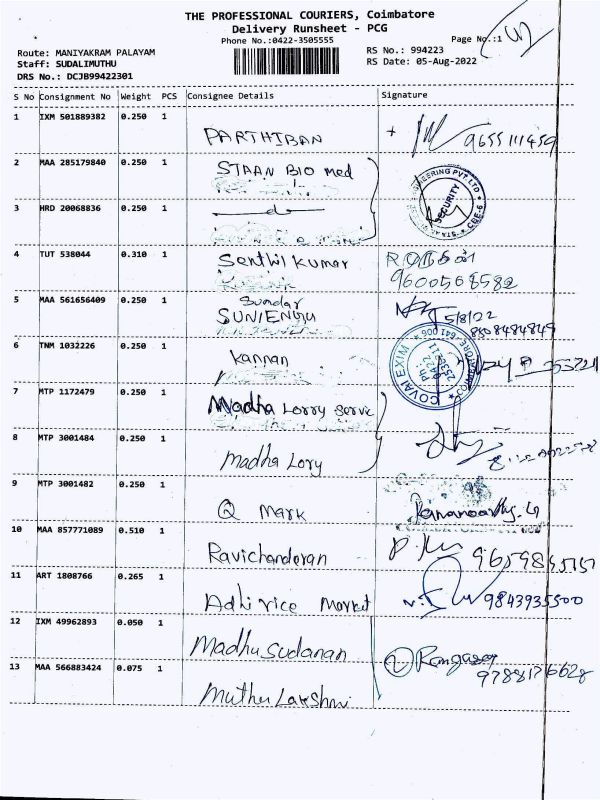 THE PROFESSIONAL COURIERS, Coimbatore
Delivery Runsheet - PCG
Phone No.:0422-3505555
Page No.:1
Route: MANIYAKRAM PALAYAM
Staff: SUDALIMUTHU
DRS No.: DCJB99422301
RS No.: 994223
RS Date: 05-Aug-2022
S No Consignment No Weight PCS Consignee Details Signature
1 IXM 501889382 0.250 1 PARTHIBAN
2 MAA 285179840 0.250 1 STAAN BIO med
SECURITY
3 HRD 20068836 0.250 1 do
4 TUT 538044 0.310 1 Senthil Kumar
9600568582
5 MAA 561656409 0.250 1 Sundar
SUNIENGU 5/8/22
COVAI EXIM
COIMBATORE-641 006
6 TNM 1032226 0.250 1 Kannan
7 MTP 1172479 0.250 1 Madha Lorry Servic
8 MTP 3001484 0.250 1 Madha Lory
9 MTP 3001482 0.250 1 Q MARK
10 MAA 857771089 0.510 1 Ravichanderan
11 ART 1808766 0.265 1 Adhi rice Market 9843935500
12 IXM 49962893 0.050 1 Madhusudanan
Rangaraj
13 MAA 566883424 0.075 1 Muthu Lakshmi